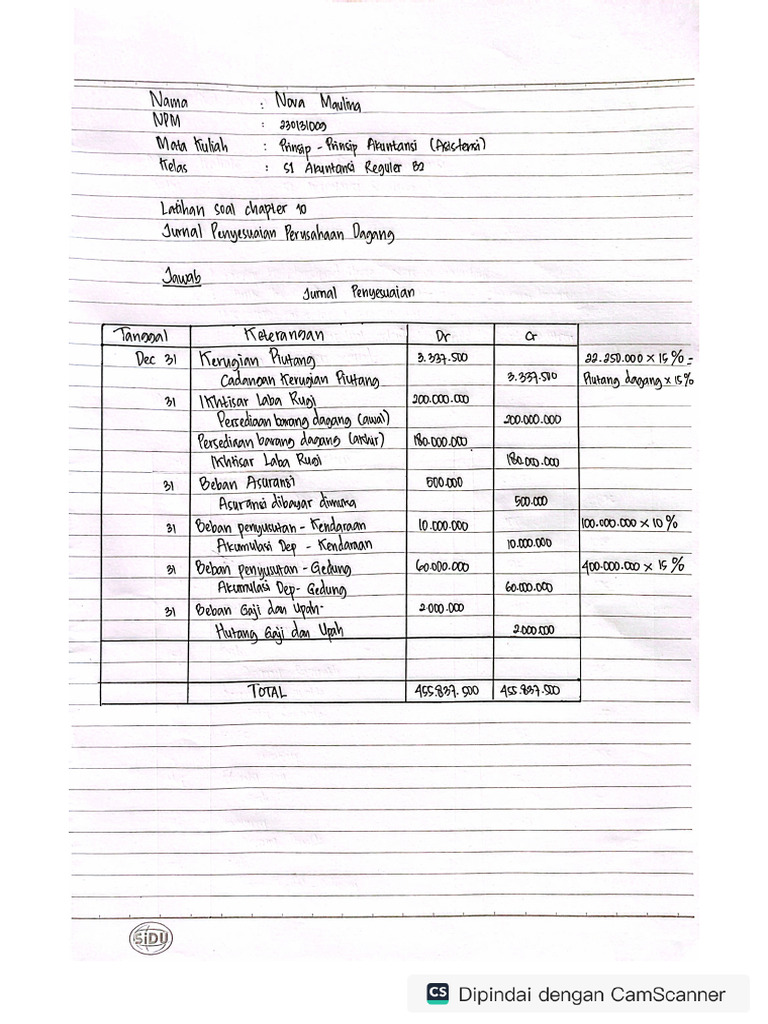 Nama : Nova Maulina
NPM : 230131009
Mata Kuliah : Prinsip - Prinsip Akuntansi (Asistensi)
Kelas : S1 Akuntansi Reguler B2
Latihan soal chapter 10
Jurnal Penyesuaian Perusahaan Dagang
Jawab
Jurnal Penyesuaian
Tanggal Keterangan Dr Cr
Dec 31 Kerugian Piutang 3.337.500 22.250.000 x 15% =
Cadangan Kerugian Piutang 3.337.500 Piutang dagang x 15%
31 Ikhtisar Laba Rugi 200.000.000
Persediaan barang dagang (awal) 200.000.000
Persediaan barang dagang (akhir) 180.000.000
Ikhtisar Laba Rugi 180.000.000
31 Beban Asuransi 500.000
Asuransi dibayar dimuka 500.000
31 Beban penyusutan - Kendaraan 10.000.000 100.000.000 x 10%
Akumulasi Dep - Kendaraan 10.000.000
31 Beban penyusutan - Gedung 60.000.000 400.000.000 x 15%
Akumulasi Dep - Gedung 60.000.000
31 Beban Gaji dan Upah- 2.000.000
Hutang Gaji dan Upah 2.000.000
TOTAL 455.837.500 455.837.500
SiDU
CS Dipindai dengan CamScanner